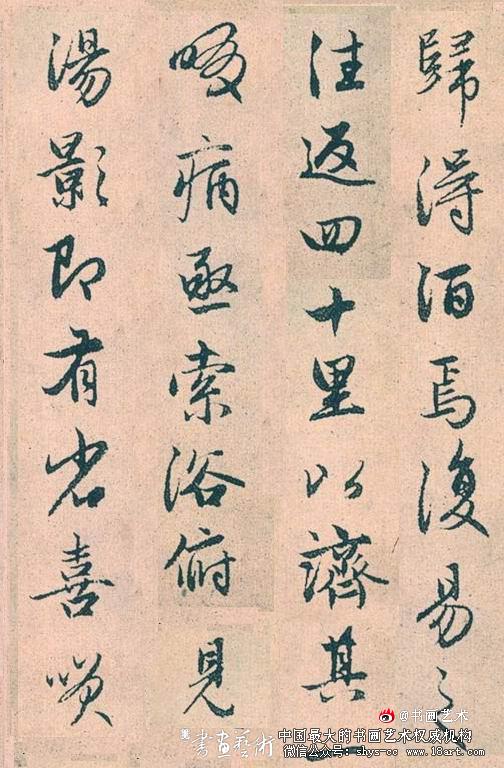 歸得酒焉復易之
往返四十里以濟其
啜病亟索浴俯見
湯影即有省喜
@书画艺术
書畫藝術
中国最大的书画艺术权威机构
微信公众号：shys-cc www.18art.com